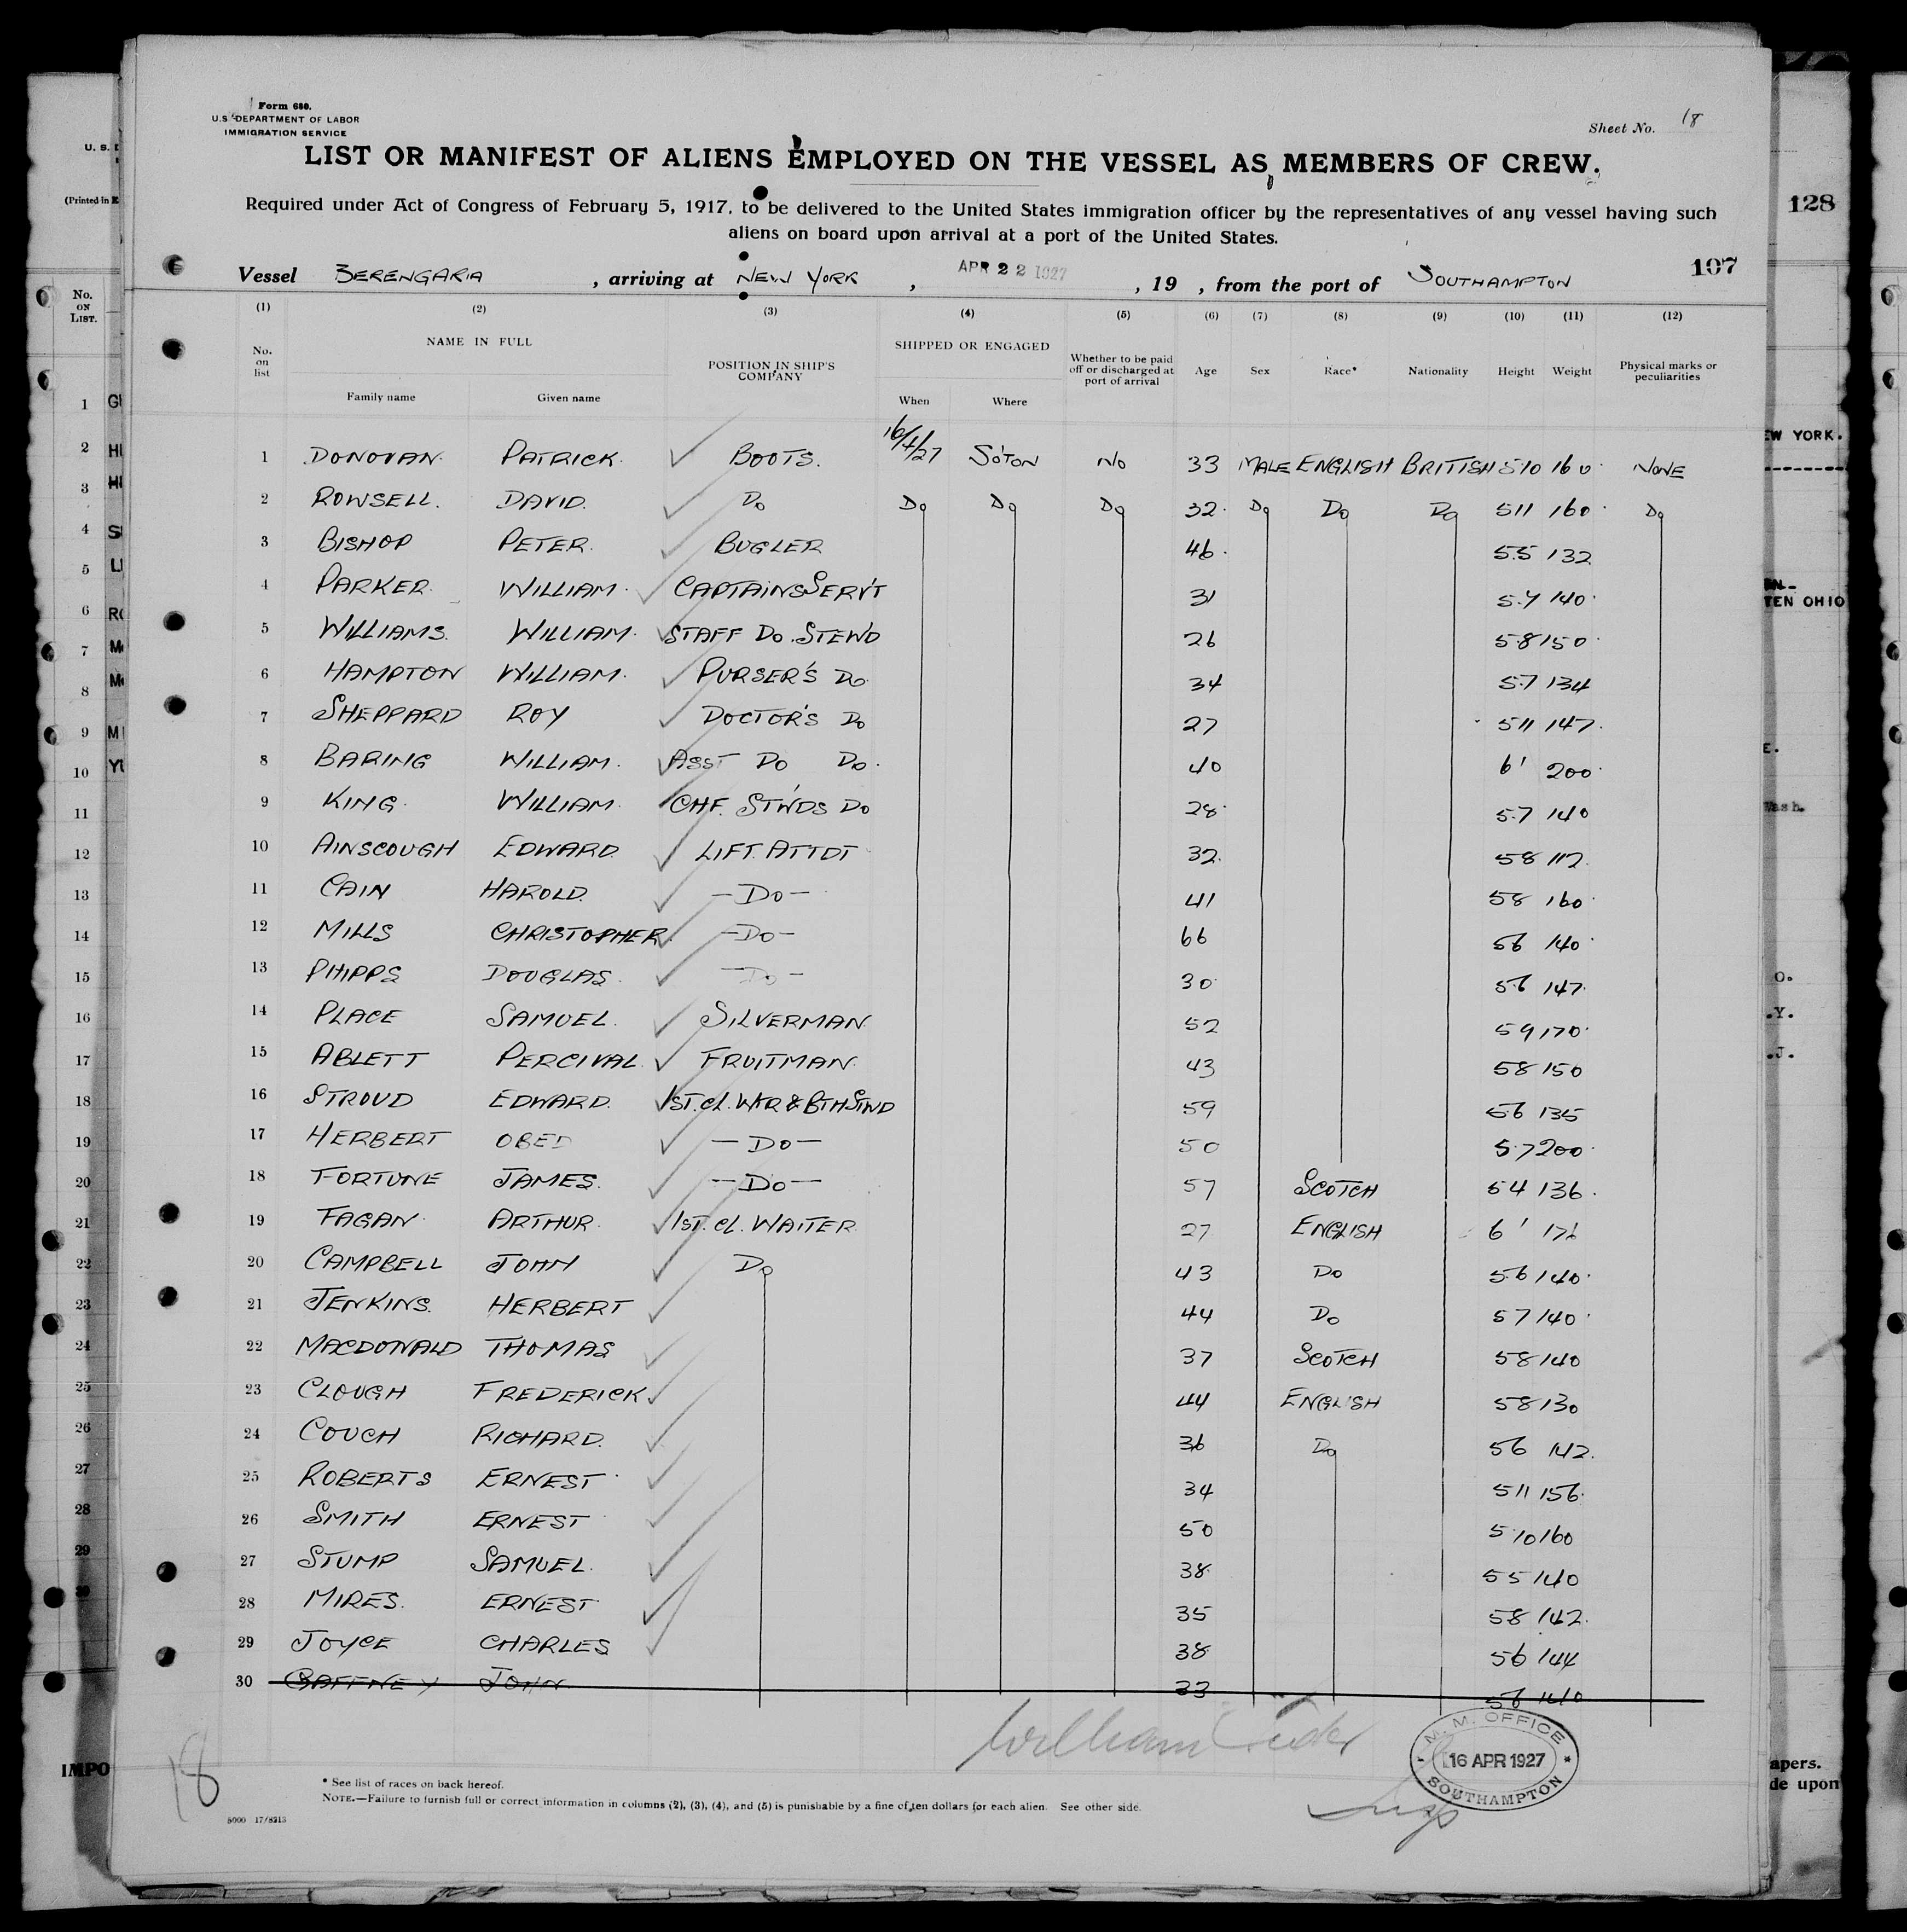 Form 680.
U.S. DEPARTMENT OF LABOR
IMMIGRATION SERVICE
Sheet No. 18
LIST OR MANIFEST OF ALIENS EMPLOYED ON THE VESSEL AS MEMBERS OF CREW.
Required under Act of Congress of February 5, 1917, to be delivered to the United States immigration officer by the representatives of any vessel having such
aliens on board upon arrival at a port of the United States.
128
107
Vessel BERENGARIA, arriving at NEW YORK, APR 22 1927, 19 , from the port of SOUTHAMPTON
(1) (2) (3) (4) (5) (6) (7) (8) (9) (10) (11) (12)
No. on list NAME IN FULL POSITION IN SHIP'S COMPANY SHIPPED OR ENGAGED Whether to be paid off or discharged at port of arrival Age Sex Race* Nationality Height Weight Physical marks or peculiarities
Family name Given name When Where
1 DONOVAN PATRICK BOOTS. 16/4/27 S'OTON NO 33 MALE ENGLISH BRITISH 5.10 160 NONE
2 ROWSELL. DAVID. Do Do Do Do 32 Do Do Do 511 160 Do
3 BISHOP PETER. BUGLER 46 5.5 132
4 PARKER. WILLIAM. CAPTAINS SERV'T 31 5.7 140
5 WILLIAMS. WILLIAM. STAFF Do. STEW'D 26 5.8 150
6 HAMPTON WILLIAM. PURSER'S Do. 34 5.7 134
7 SHEPPARD ROY DOCTOR'S Do 27 511 147
8 BARING WILLIAM. ASST Do Do. 40 6' 200
9 KING. WILLIAM. CHF. STW'DS Do 28 5.7 140
10 AINSCOUGH EDWARD. LIFT. ATTDT 32. 58 112
11 CAIN HAROLD. —Do— 41 58 160
12 MILLS CHRISTOPHER. —Do— 66 56 140
13 PHIPPS DOUGLAS. —Do— 30 5.6 147
14 PLACE SAMUEL. SILVERMAN. 52 59 170
15 ABLETT PERCIVAL. FRUITMAN. 43 58 150
16 STROUD EDWARD. 1ST. CL. WTR & BTH STWD 59 56 135
17 HERBERT OBED —Do— 50 5.7 200
18 FORTUNE JAMES. —Do— 57 SCOTCH 54 136
19 FAGAN. ARTHUR. 1ST. CL. WAITER 27 ENGLISH 6' 176
20 CAMPBELL JOHN Do 43 Do 5.6 140
21 JENKINS. HERBERT 44 Do 57 140
22 MACDONALD THOMAS 37 SCOTCH 58 140
23 CLOUGH FREDERICK 44 ENGLISH 58 130
24 COUCH RICHARD. 36 Do 56 142
25 ROBERTS ERNEST 34 511 156
26 SMITH ERNEST 50 5.10 160
27 STUMP SAMUEL. 38 55 140
28 MIRES. ERNEST 35 58 142
29 JOYCE CHARLES 38 56 144
30 GAFFNEY JOHN 33 56 140
William
M. M. OFFICE
16 APR 1927
SOUTHAMPTON
18
* See list of races on back hereof.
NOTE.—Failure to furnish full or correct information in columns (2), (3), (4), and (5) is punishable by a fine of ten dollars for each alien. See other side.